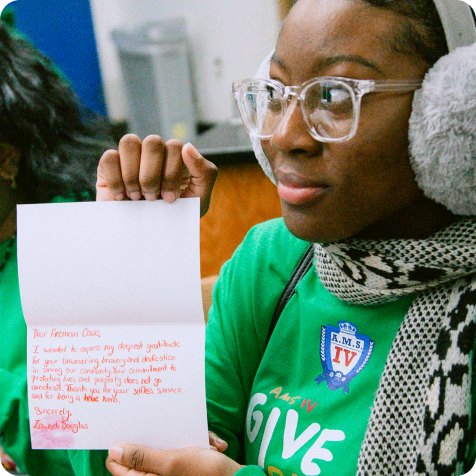 Dear Fireman Cave,
I wanted to express my deepest gratitude
for your unwavering bravery and dedication
in serving our community. Your commitment to
protecting lives and property does not go
unnoticed. Thank you for your selfless service
and for being a true hero.
Sincerely,
Douglas
A.M.S.
IV
AMS IV
GIVE